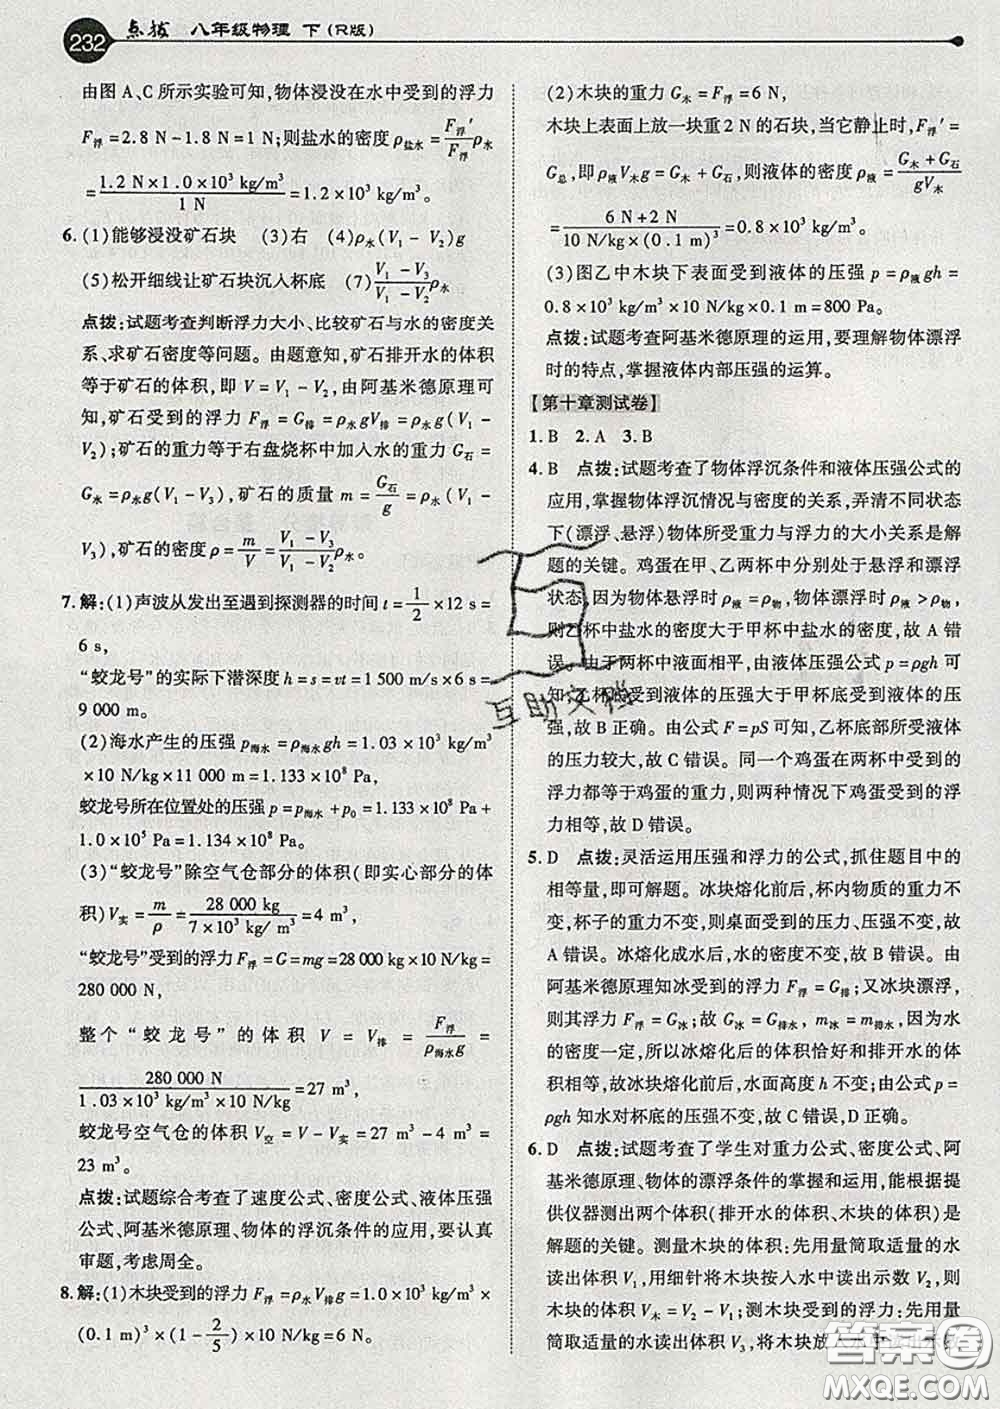 232 点拨 八年级物理 下(R版)
由图 A、C 所示实验可知,物体浸没在水中受到的浮力
F浮=2.8 N-1.8 N=1 N;则盐水的密度 ρ盐水=F浮′/F浮 ρ水
=1.2 N×1.0×10³ kg/m³/1 N=1.2×10³ kg/m³。
6. (1)能够浸没矿石块 (3)右 (4)ρ水(V₁-V₂)g
(5)松开细线让矿石块沉入杯底 (7)V₁-V₃/V₁-V₂ ρ水
点拨:试题考查判断浮力大小、比较矿石与水的密度关
系、求矿石密度等问题。由题意知,矿石排开水的体积
等于矿石的体积,即 V=V₁-V₂,由阿基米德原理可
知,矿石受到的浮力 F浮=G排=ρ水gV排=ρ水(V₁-
V₂)g。矿石的重力等于右盘烧杯中加入水的重力 G石=
G水=ρ水g(V₁-V₃),矿石的质量 m=G石/g=ρ水(V₁-
V₃),矿石的密度 ρ=m/V=V₁-V₃/V₁-V₂ ρ水。
7. 解:(1)声波从发出至遇到探测器的时间 t=1/2×12 s=
6 s,
“蛟龙号”的实际下潜深度 h=s=vt=1 500 m/s×6 s=
9 000 m。
(2)海水产生的压强 p海水=ρ海水gh=1.03×10³ kg/m³
×10 N/kg×11 000 m=1.133×10⁸ Pa,
蛟龙号所在位置处的压强 p=p海水+p₀=1.133×10⁸ Pa+
1.0×10⁵ Pa=1.134×10⁸ Pa。
(3)“蛟龙号”除空气仓部分的体积(即实心部分的体
积)V实=m/ρ=28 000 kg/7×10³ kg/m³=4 m³,
“蛟龙号”受到的浮力 F浮=G=mg=28 000 kg×10 N/kg=
280 000 N,
整个“蛟龙号”的体积 V=V排=F浮/ρ海水g=
280 000 N/1.03×10³ kg/m³×10 N/kg=27 m³,
蛟龙号空气仓的体积 V空=V-V实=27 m³-4 m³=
23 m³。
点拨:试题综合考查了速度公式、密度公式、液体压强
公式、阿基米德原理、物体的浮沉条件的应用,要认真
审题,考虑周全。
8. 解:(1)木块受到的浮力 F浮=ρ水V排g=1.0×10³ kg/m³×
(0.1 m)³×(1-2/5)×10 N/kg=6 N。
(2)木块的重力 G木=F浮=6 N,
木块上表面上放一块重 2 N 的石块,当它静止时,F浮′=
G总,即 ρ液V木g=G木+G石,则液体的密度 ρ液=G木+G石/gV木
=6 N+2 N/10 N/kg×(0.1 m)³=0.8×10³ kg/m³。
(3)图乙中木块下表面受到液体的压强 p=ρ液gh=
0.8×10³ kg/m³×10 N/kg×0.1 m=800 Pa。
点拨:试题考查阿基米德原理的运用,要理解物体漂浮
时的特点,掌握液体内部压强的运算。
【第十章测试卷】
1. B 2. A 3. B
4. B 点拨:试题考查了物体浮沉条件和液体压强公式的
应用,掌握物体浮沉情况与密度的关系,弄清不同状态
下(漂浮、悬浮)物体所受重力与浮力的大小关系是解
题的关键。鸡蛋在甲、乙两杯中分别处于悬浮和漂浮
状态,因为物体悬浮时 ρ液=ρ物,物体漂浮时 ρ液>ρ物,
则乙杯中盐水的密度大于甲杯中盐水的密度,故 A 错
误。由于两杯中液面相平,由液体压强公式 p=ρgh 可
知,乙杯底受到液体的压强大于甲杯底受到液体的压
强,故 B 正确。由公式 F=pS 可知,乙杯底部所受液体
的压力较大,故 C 错误。同一个鸡蛋在两杯中受到的
浮力都等于鸡蛋的重力,则两种情况下鸡蛋受到的浮
力相等,故 D 错误。
5. D 点拨:灵活运用压强和浮力的公式,抓住题目中的
相等量,即可解题。冰块熔化前后,杯内物质的质量不
变,杯子的重力不变,则桌面受到的压力、压强不变,故
A 错误。冰熔化成水后,水的密度不变,故 B 错误。由
阿基米德原理知冰受到的浮力 F浮=G排;又冰块漂浮,
则其浮力 F浮=G冰;故 G冰=G排水,m冰=m排水,因为水
的密度一定,所以冰熔化后的体积恰好和排开水的体
积相等,故冰块熔化前后,水面高度 h 不变;由公式 p=
ρgh 知水对杯底的压强不变,故 C 错误,D 正确。
6. D 点拨:试题考查了学生对重力公式、密度公式、阿
基米德原理、物体的漂浮条件的掌握和运用,能根据提
供仪器测出两个体积(排开水的体积、木块的体积)是
解题的关键。测量木块的体积:先用量筒取适量的水
读出体积 V₁,用细针将木块按入水中读出示数 V₂,则
木块的体积 V木=V₂-V₁;测木块的浮力:先用量
筒取适量的水读出体积 V₃,将木块放入
互助文档
答案圈
MXQE.COM